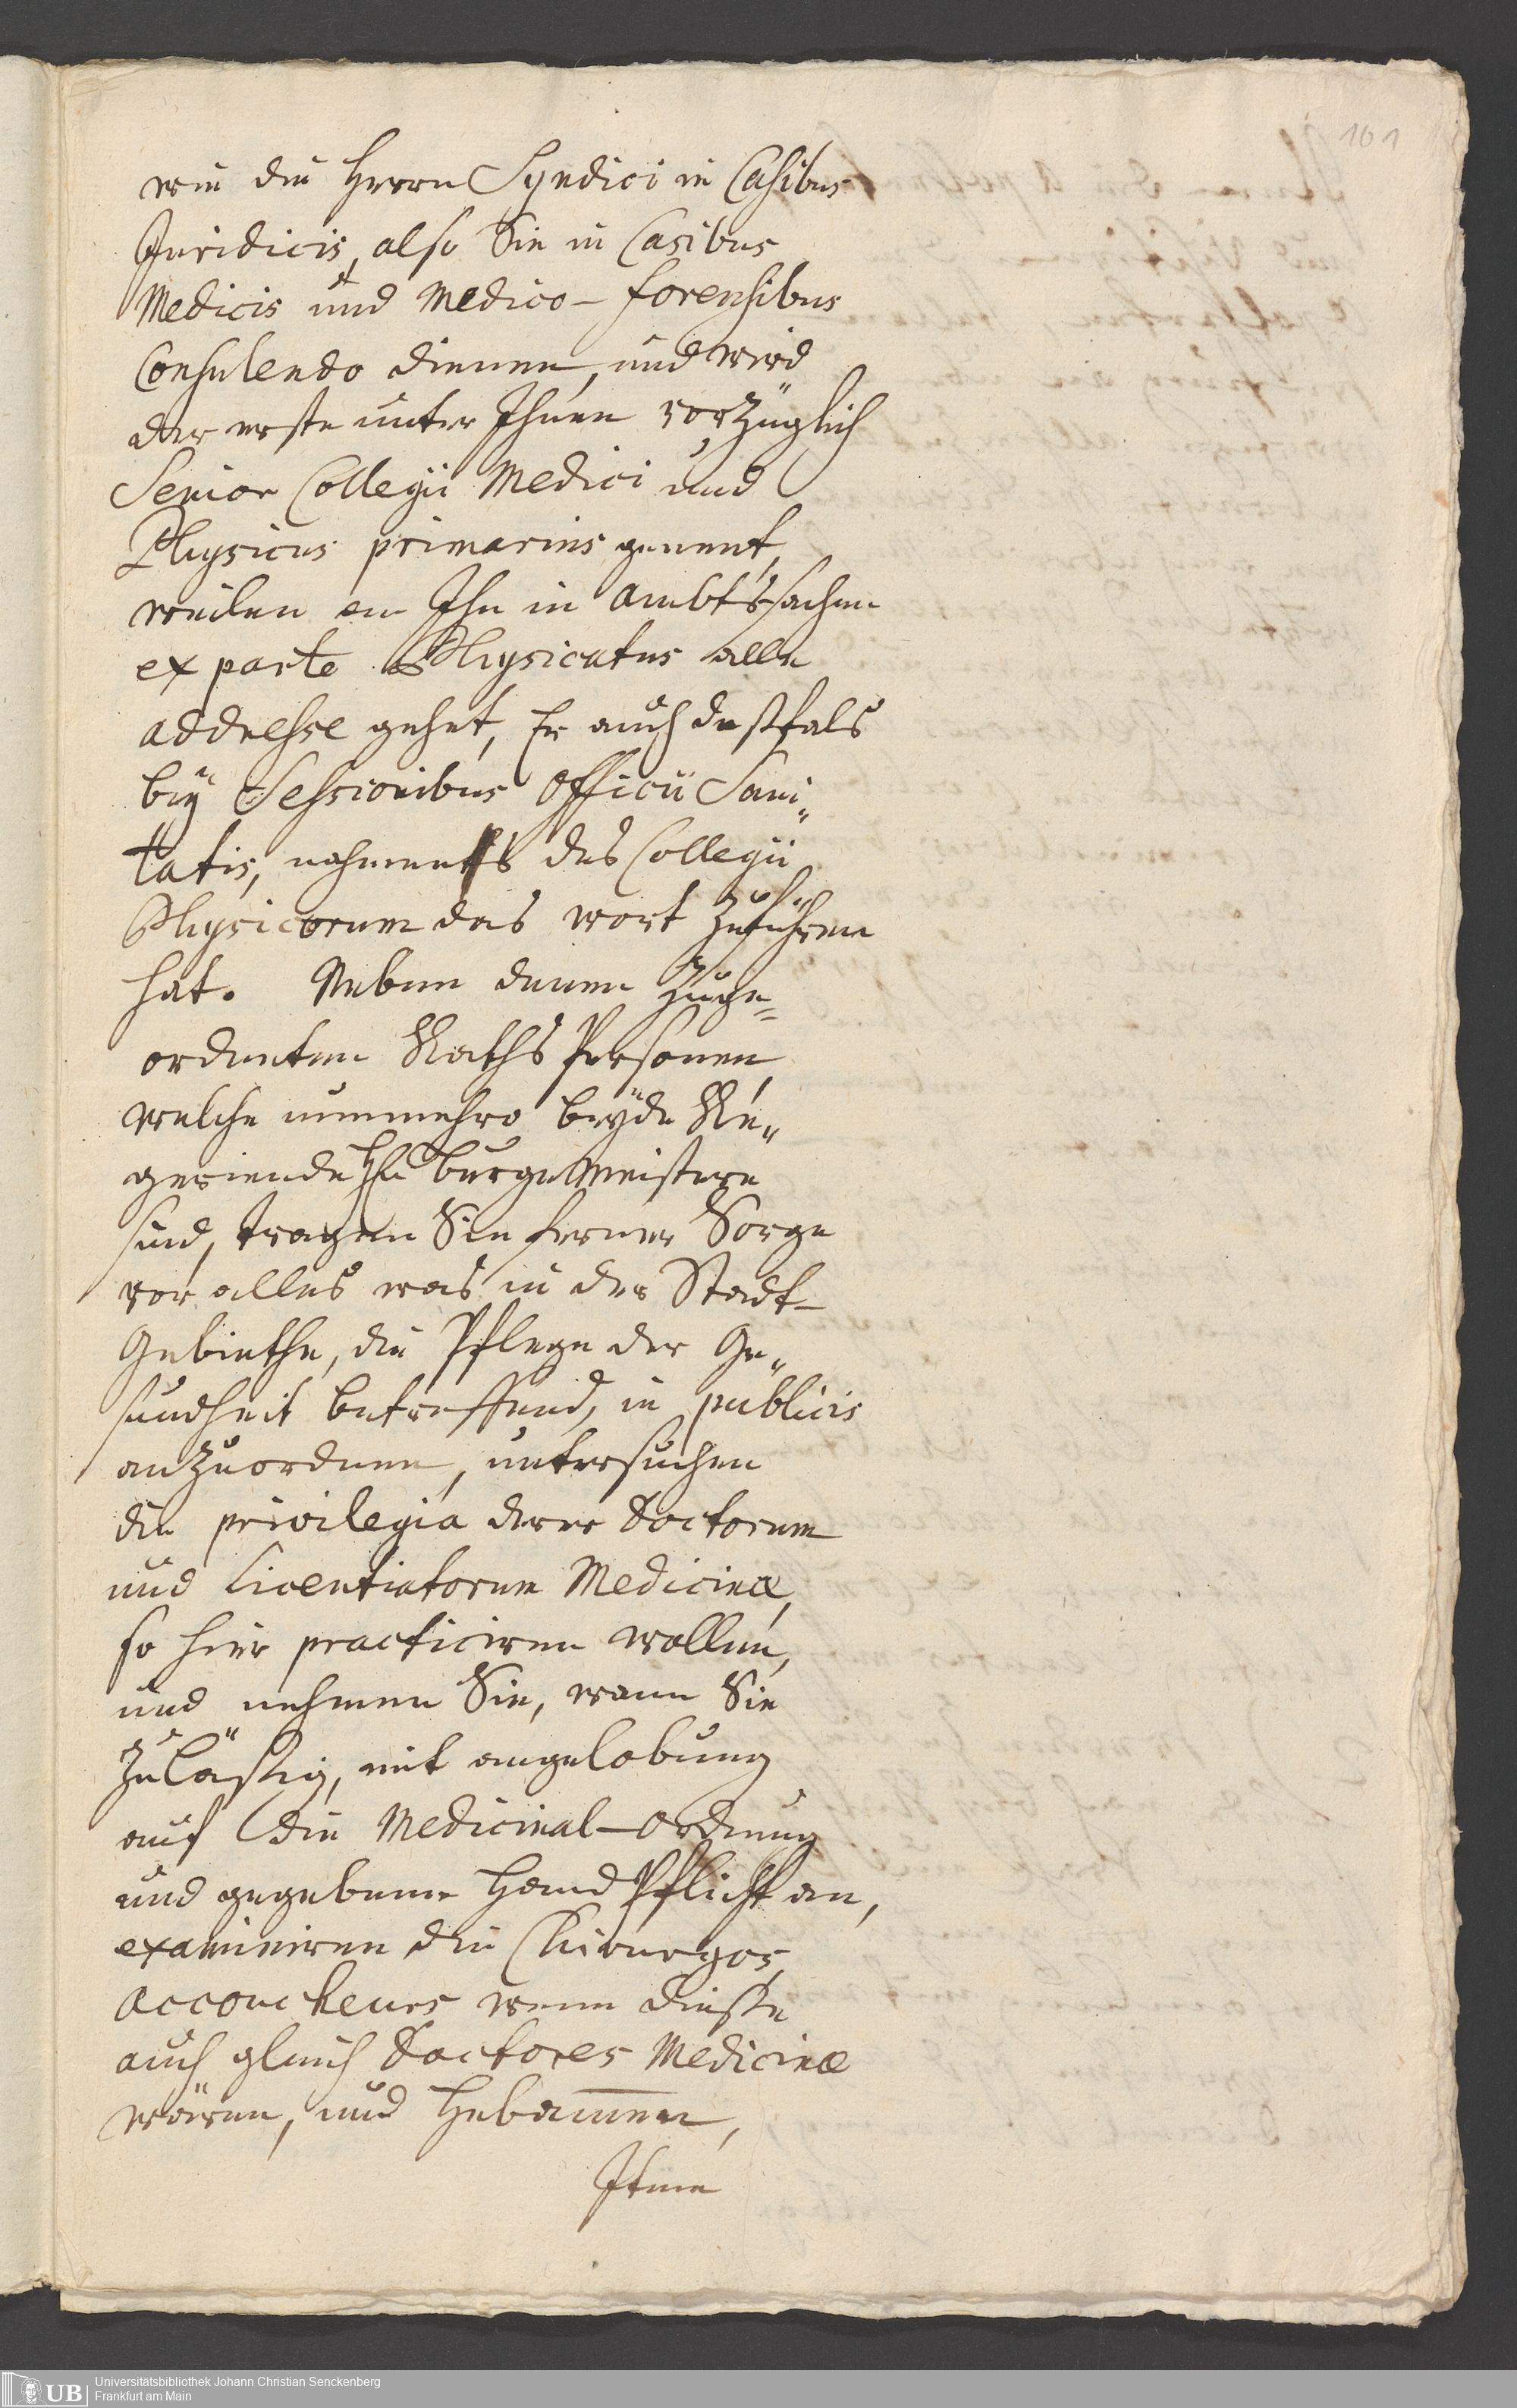 101
wie die Herrn Syndici in Casibus
Juridicis, also Sie in Casibus
Medicis und Medico-forensibus
Consulendo dienen, und wird
der erste unter Ihnen vorzüglich
Senior Collegii Medici und
Physicus primarius genent,
weilen an Ihn in Ambts sachen
ex parte Physicatus alle
addresse gehet, Er auch deßfals
beÿ Sessionibus Officii Sani„
tatis, nahmens des Collegii
Physicorum das wort zuführen
hat. Neben denen zuge=
ordneten Raths Personen,
welche nunmehro beÿde Re„
gerirende Hhn burgemeistere
sind, tragen Sie ferner Sorge
vor alles was in der Stadt-
Gebiethe, die Pflege der Ge„
sundheit betreffend, in publicis
anzuordnen, untersuchen
die privilegia derer Doctorum
und Licentiatorum Medicinæ,
so hier practiciren wollen,
und nehmen Sie, wann Sie
zuläßig, mit angelobung
auf die Medicinal-Ordnung
und gegebener Hand Pflicht an,
examiniren die Chirurgos,
Accoucheurs wenn dieße
auch gleich Doctores Medicinæ
wären, und Hebam̅en,
Item
UB
Universitätsbibliothek Johann Christian Senckenberg
Frankfurt am Main